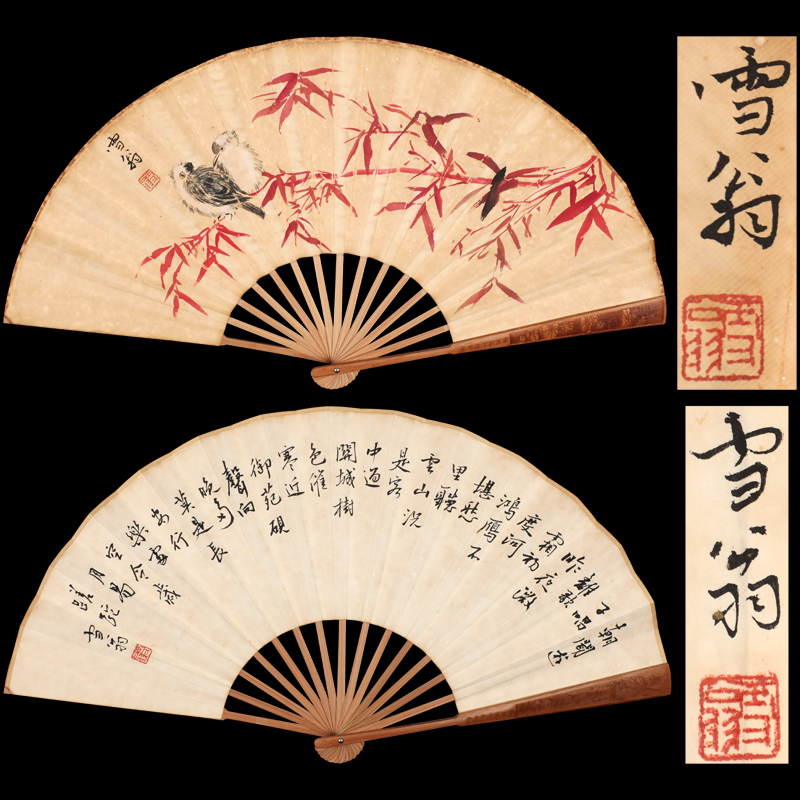 雪翁
雪翁
朝聞遊
子唱
離歌
昨夜微
霜初
度河
鴻鴈不
堪愁
里聽
雲山況
是客
中過
關城樹
色催
寒近
御苑
聲向
晚多
莫是長
安行
樂處
空令歲
月易
蹉跎
雪翁
雪翁